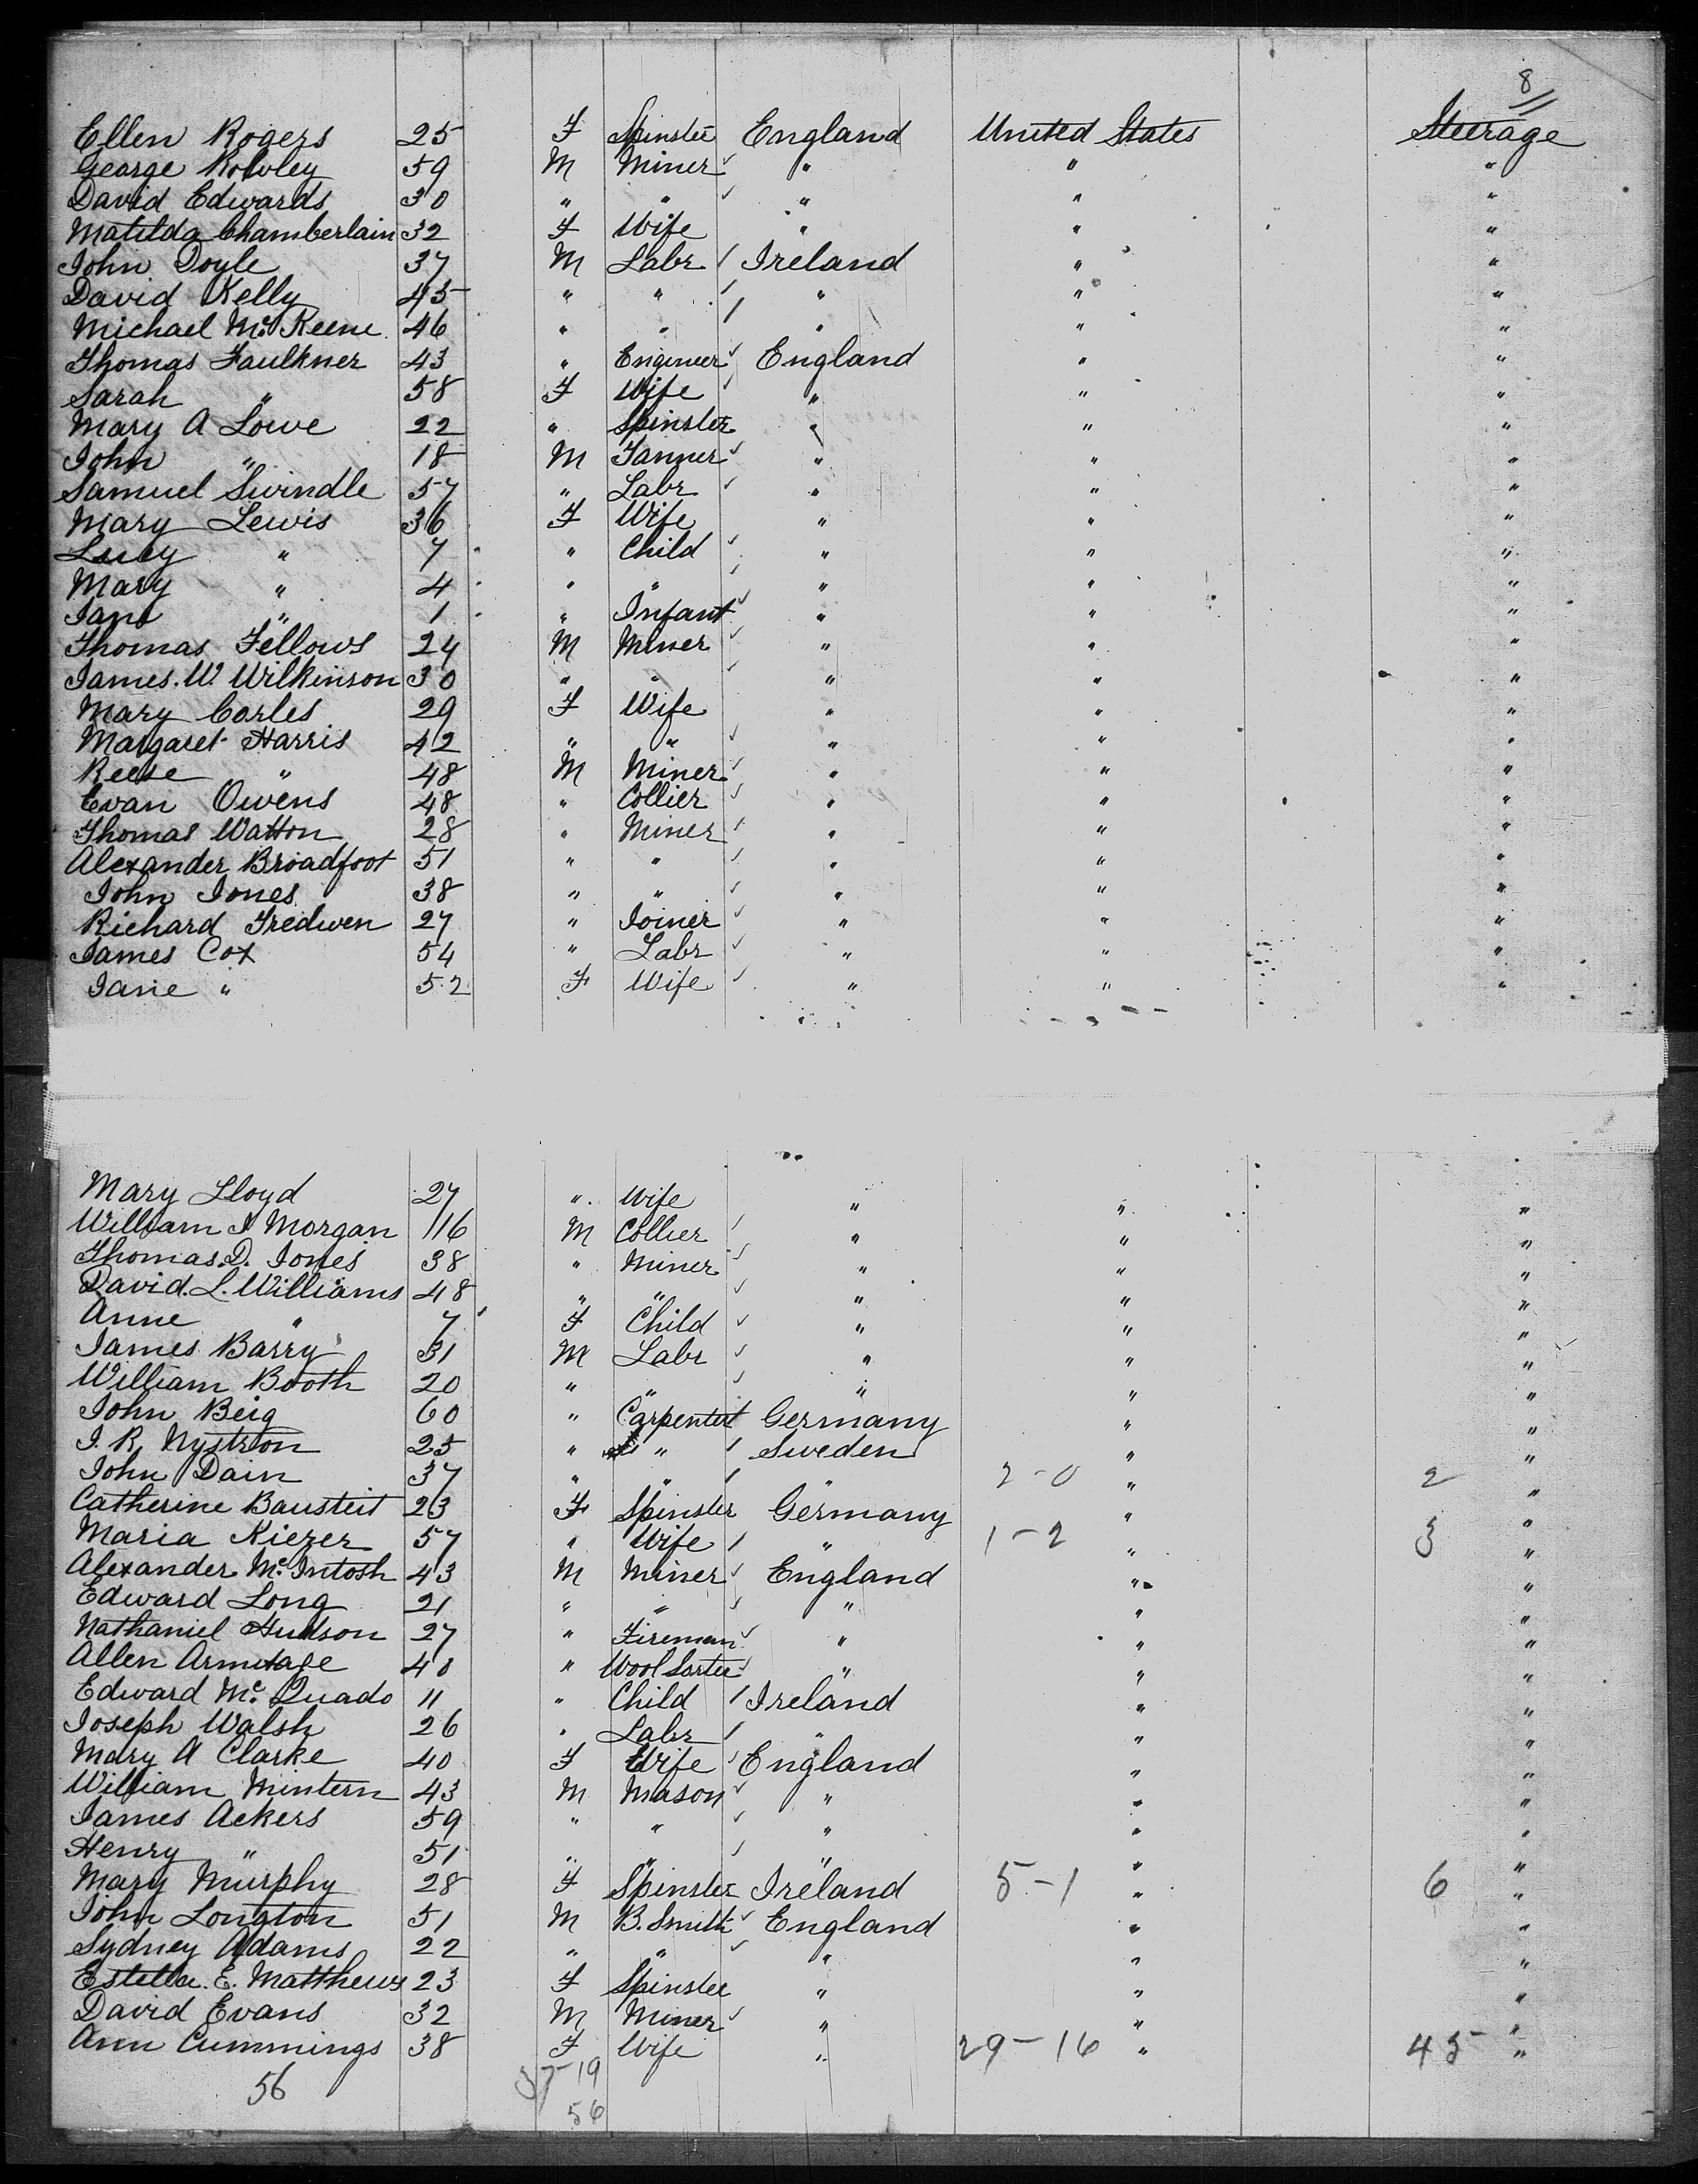 8
Ellen Rogers 25 F Spinster England United States Steerage
George Rowley 59 M Miner " " "
David Edwards 30 " " " " "
Matilda Chamberlain 32 F Wife " " "
John Doyle 37 M Labr Ireland " "
David Kelly 45 " " " " "
Michael McKeene 46 " " " " "
Thomas Faulkner 43 " Engineer England " "
Sarah " 58 F Wife " " "
Mary A Lowe 22 " Spinster " " "
John " 18 M Tanner " " "
Samuel Swindle 57 " Labr " " "
Mary Lewis 36 F Wife " " "
Lucy " 7 " Child " " "
Mary " 4 " " " " "
Jane " 1 " Infant " " "
Thomas Fellows 24 M Miner " " "
James. W. Wilkinson 30 " " " " "
Mary Corles 29 F Wife " " "
Margaret Harris 42 " " " " "
Reese " 48 M Miner " " "
Evan Owens 48 " Collier " " "
Thomas Watton 28 " Miner " " "
Alexander Broadfoot 51 " " " " "
John Jones 38 " " " " "
Richard Tredwen 27 " Joiner " " "
James Cox 54 " Labr " " "
Jane " 52 F Wife " " "
Mary Lloyd 27 " Wife " " "
William J Morgan 16 M Collier " " "
Thomas. D. Jones 38 " Miner " " "
David. L. Williams 48 " " " " "
Anne " 7 F Child " " "
James Barry 31 M Labr " " "
William Booth 20 " " " " "
John Beig 60 " Carpenter Germany " "
J. R. Nystron 25 " " Sweden " "
John Dain 37 " " " 2-0 " 2 "
Catherine Bausteit 23 F Spinster Germany " "
Maria Kiezer 57 " Wife " 1-2 " 3 "
Alexander McIntosh 43 M Miner England " "
Edward Long 21 " " " " "
Nathaniel Hudson 27 " Fireman " " "
Allen Armitage 40 " Wool Sorter " " "
Edward Mc Quado 11 " Child Ireland " "
Joseph Walsh 26 " Labr " " "
Mary A Clarke 40 F Wife England " "
William Mintern 43 M Mason " " "
James Ackers 59 " " " " "
Henry " 51 " " " " "
Mary Murphy 28 F Spinster Ireland 5-1 " 6 "
John Longton 51 M B. Smith England " "
Sydney Adams 22 " " " " "
Estella. E. Matthews 23 F Spinster " " "
David Evans 32 M Miner " " "
Ann Cummings 38 F Wife " 29-16 " 45 "
56 37-19
56